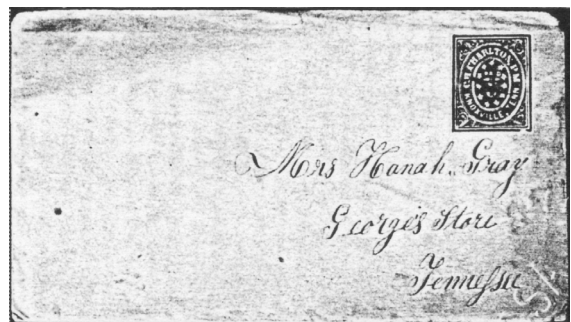 C.H. CHARLTON, P.M.
KNOXVILLE, TENN.
Mrs Hanah. Gray
George's Store
Tennessee